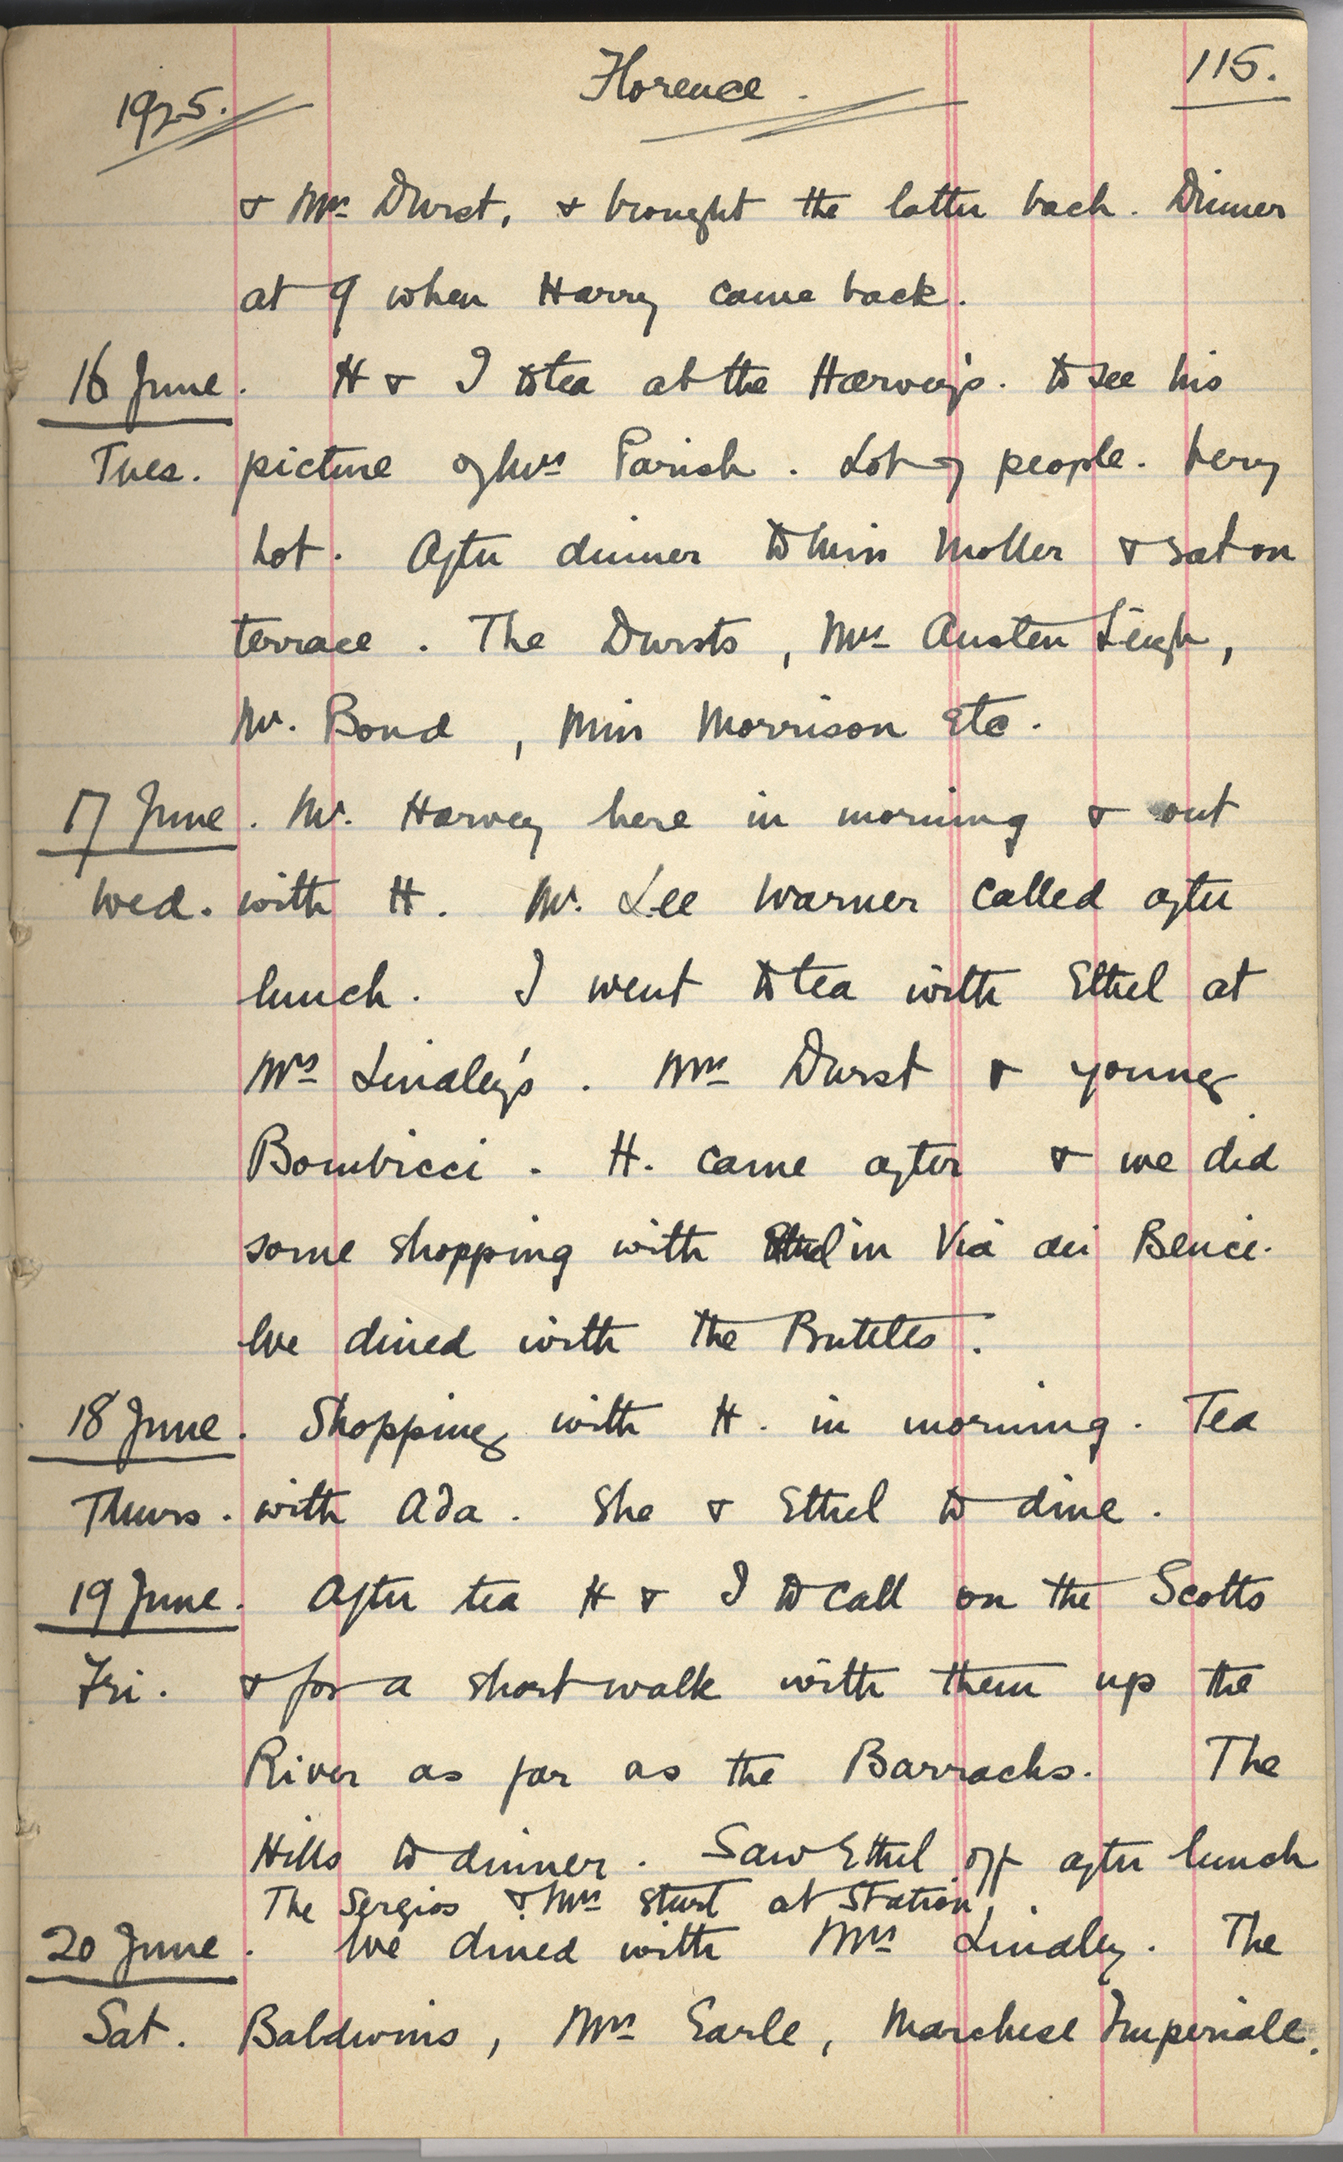 1925. Florence. 115.
& Mrs Durst, & brought the latter back. Dinner
at 9 when Harry came back.
16 June. H & I to tea at the Harvey's. to see his
Tues. picture of Mrs Parish. Lot of people. Very
hot. After dinner to Miss Moller & sat on
terrace. The Dursts, Mrs Austen Leigh,
Mr. Bond, Miss Morrison etc.
17 June. Mr. Harvey here in morning & out
Wed. with H. Mr. Lee Warner called after
lunch. I went to tea with Ethel at
Mrs Lindley's. Mrs Durst & young
Bombicci. H. came after & we did
some shopping with Ethel in Via dei Benci.
We dined with the
18 June. Shopping with H. in morning. Tea
Thurs. with Ada. She & Ethel to dine.
19 June. After tea H & I to call on the Scotts
Fri. & for a short walk with them up the
River as far as the Barracks. The
Hills to dinner. Saw Ethel off after lunch
The Sergios & Mrs at Station.
20 June. We dined with Mrs Lindley. The
Sat. Baldwins, Mrs Earle, Marchese Imperiale.